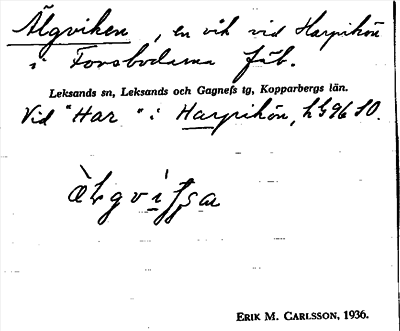 Älgviken, en vik vid Harpikön
i Forsbodarna fäb.
Leksands sn, Leksands och Gagnefs tg, Kopparbergs län.
Vid "Har" i Harpikön, hG96 SO.
ERIK M. CARLSSON, 1936.